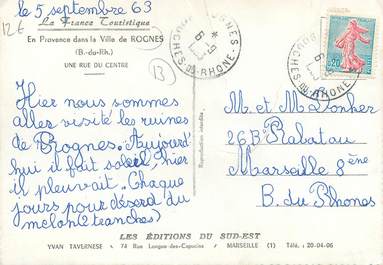 le 5 septembre 63
12€
La France Touristique
En Provence dans la Ville de ROGNES
(B.-du-Rh.)
UNE RUE DU CENTRE
13
ROGNES
BOUCHES-DU-RHONE
0,20
Hier nous sommes
alles visité les ruines
de Brognes. Aujourd'
hui il fait soleil, hier
il pleuvait. Chaque
jours pour déserd du
melon (2 tranches)
M. et M
26B Rabatau
Marseille 8ène
B. du Rhones
LES ÉDITIONS DU SUD-EST
YVAN TAVERNESE - 74 Rue Longue-des-Capucins - MARSEILLE (1) Télé. : 20-04-06